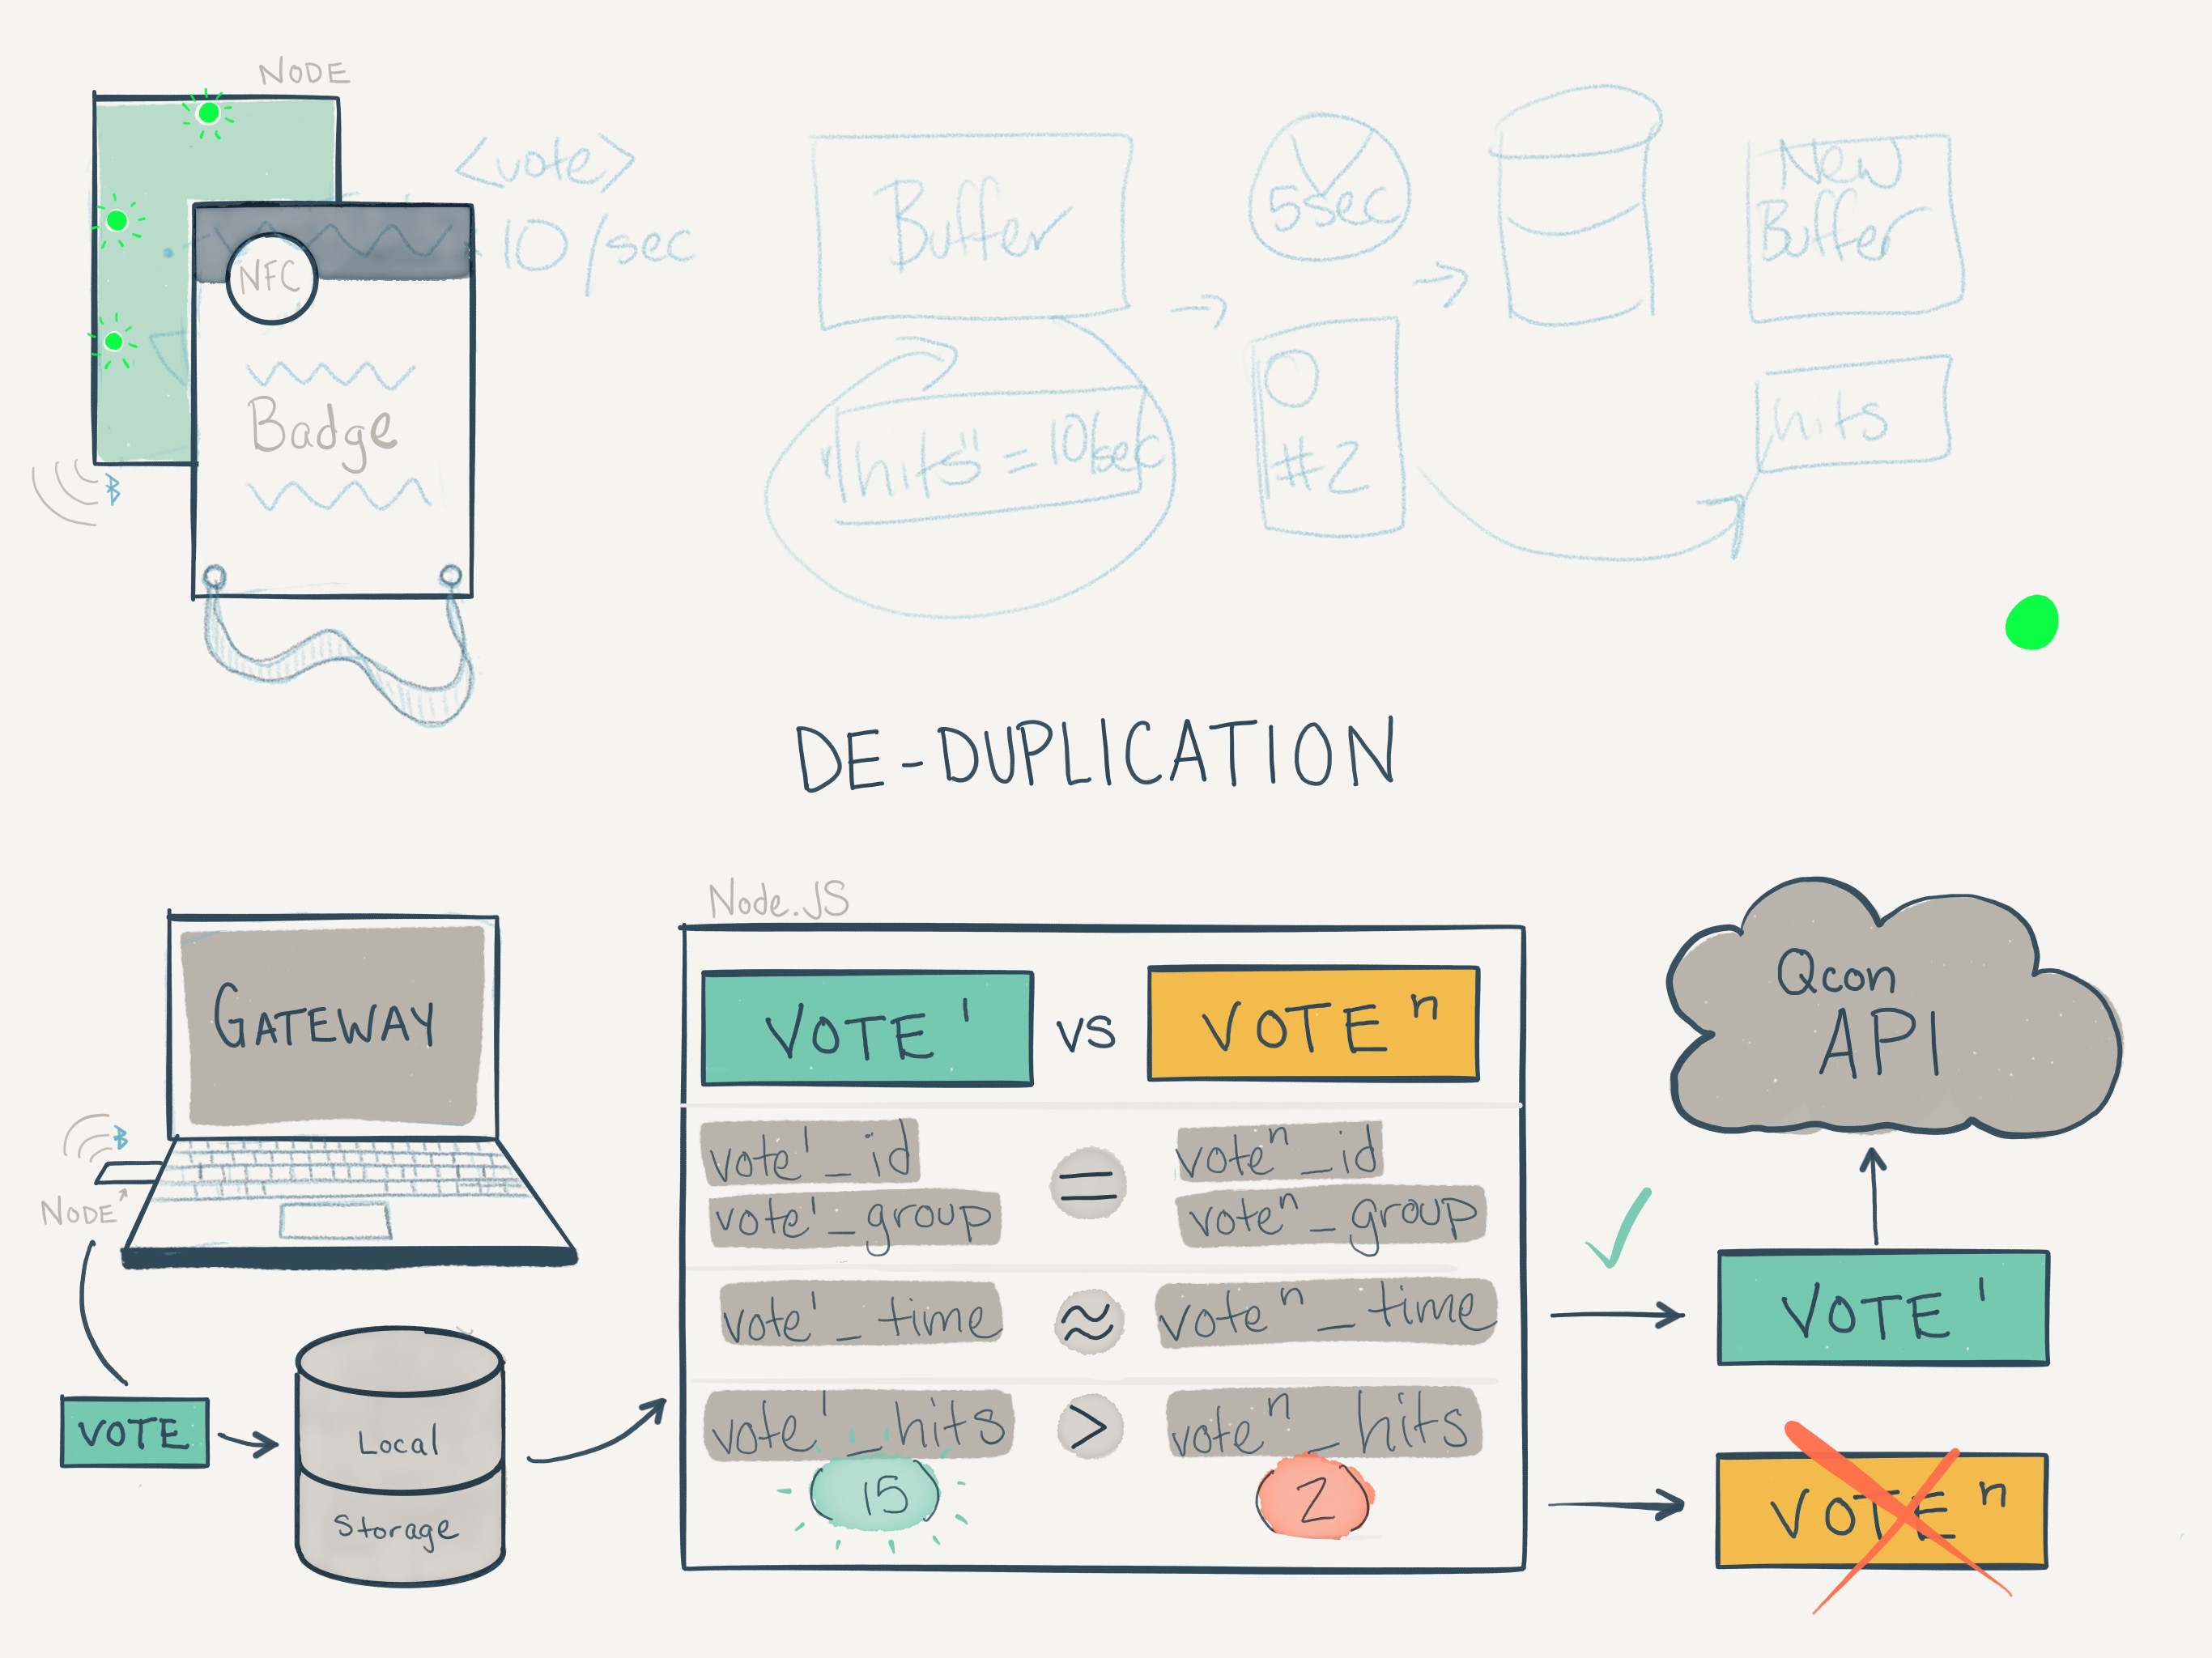 NODE
<vote>
10/sec
NFC
Badge
Buffer
"hits" = 10/sec
5sec
#2
New
Buffer
hits
DE-DUPLICATION
GATEWAY
NODE
VOTE
Local
Storage
Node.JS
VOTE' vs VOTEⁿ
vote'_id = voteⁿ_id
vote'_group voteⁿ_group
vote'_time ≈ voteⁿ_time
vote'_hits > voteⁿ_hits
15 2
Qcon
API
VOTE'
VOTEⁿ